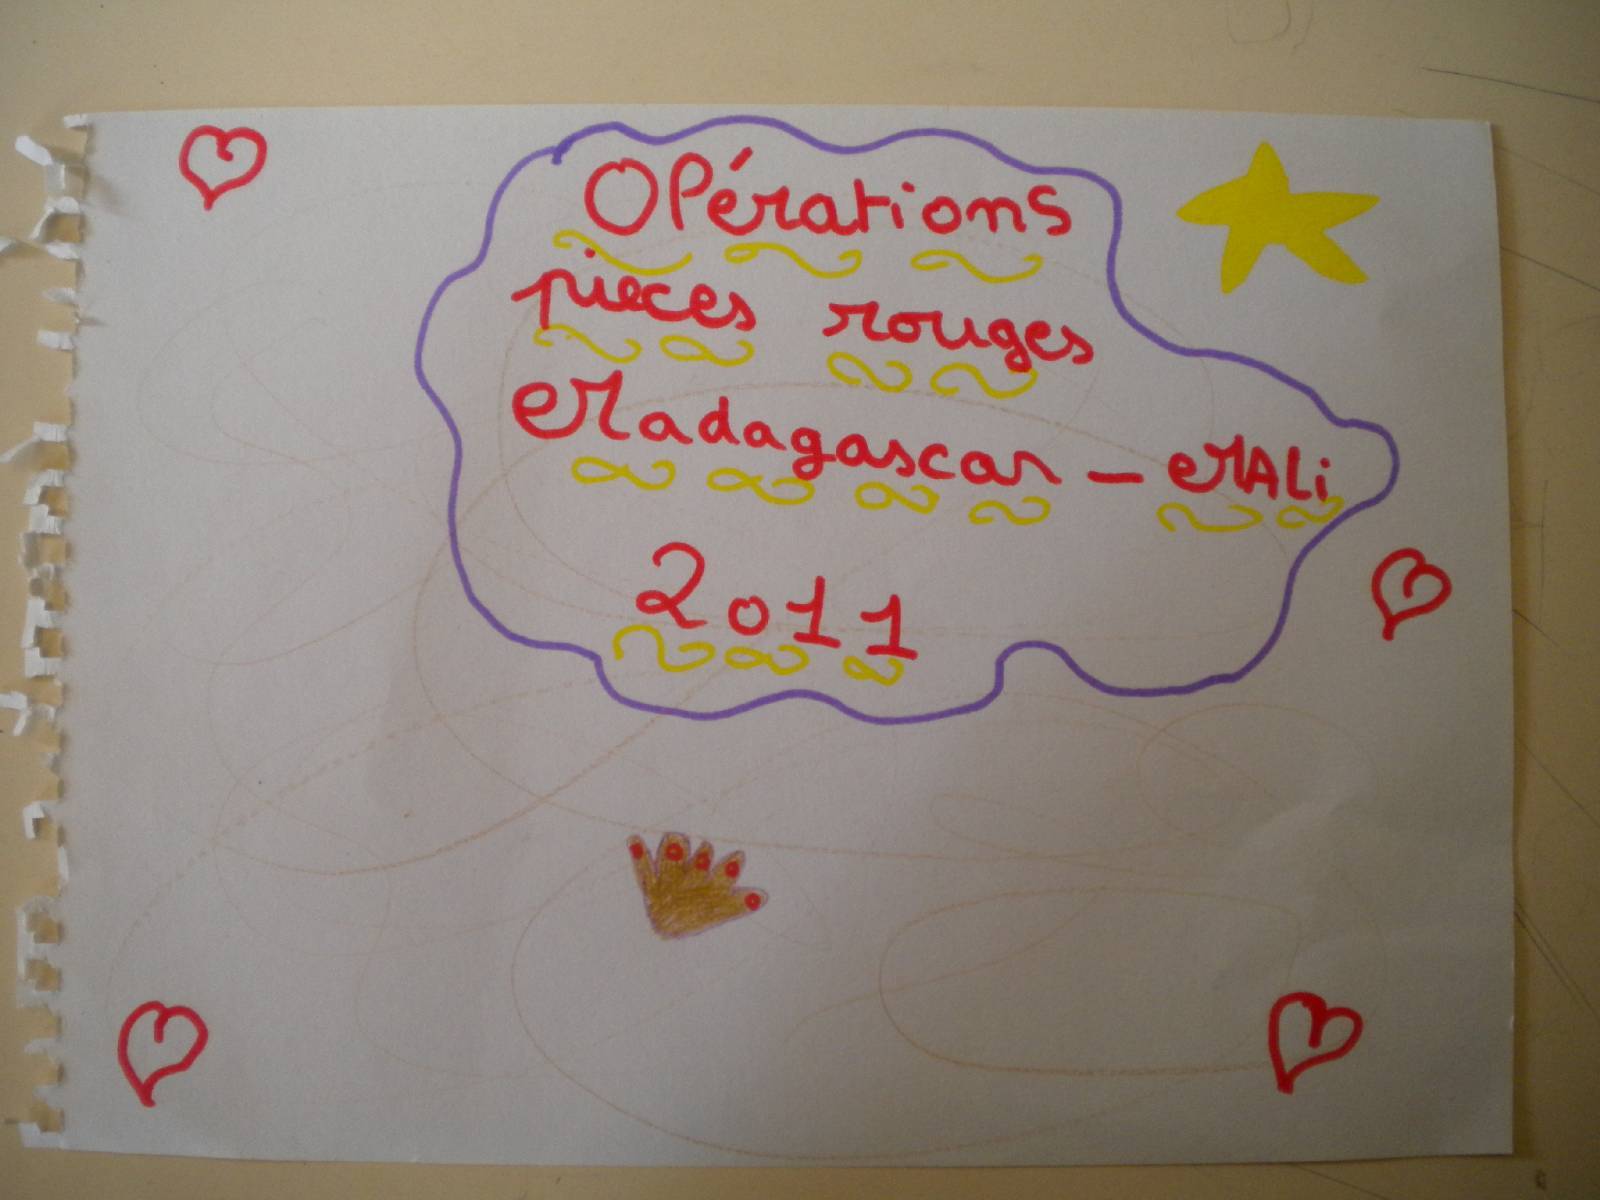 OPérations
pieces rouges
Madagascar - MALi
2011